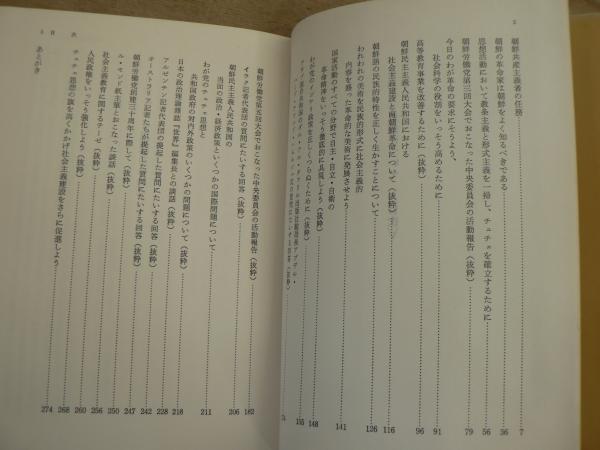 2
朝鮮共産主義者の任務 7
朝鮮の革命家は朝鮮をよく知るべきである 36
思想活動において教条主義と形式主義を一掃し、チュチェを確立するために 56
朝鮮労働党第三回大会でおこなった中央委員会の活動報告(抜粋) 79
今日のわが革命の要求にそうよう、
社会科学の役割をいっそう高めるために 91
高等教育事業を改善するために(抜粋) 96
朝鮮民主主義人民共和国における
社会主義建設と南朝鮮革命について(抜粋) 116
朝鮮語の民族的特性を正しく生かすことについて 126
われわれの美術を民族的形式に社会主義的
内容を盛った革命的な美術に発展させよう 141
国家活動のすべての分野で自主・自立・自衛の
革命精神をいっそう徹底的に具現しよう(抜粋) 148
わが党の
政策を正しく
ために(抜粋) 155
3 目 次
朝鮮労働党第五回大会でおこなった中央委員会の活動報告(抜粋) 162
イラク記者代表団の質問にたいする回答(抜粋)
朝鮮民主主義人民共和国の
当面の政治・経済政策といくつかの国際問題について 206
わが党のチュチェ思想と
共和国政府の対内外政策のいくつかの問題について(抜粋) 211
日本の政治理論雑誌『世界』編集長との談話(抜粋) 218
アルゼンチン記者代表団の提起した質問にたいする回答(抜粋) 228
オーストラリア記者たちが提起した質問にたいする回答(抜粋) 242
朝鮮労働党創建三十周年に際して(抜粋) 247
ル・モンド紙主筆とおこなった談話(抜粋) 250
社会主義教育に関するテーゼ(抜粋) 256
人民政権をいっそう強化しよう(抜粋) 260
チュチェ思想の旗を高くかかげ社会主義建設をさらに促進しよう 268
あとがき 274